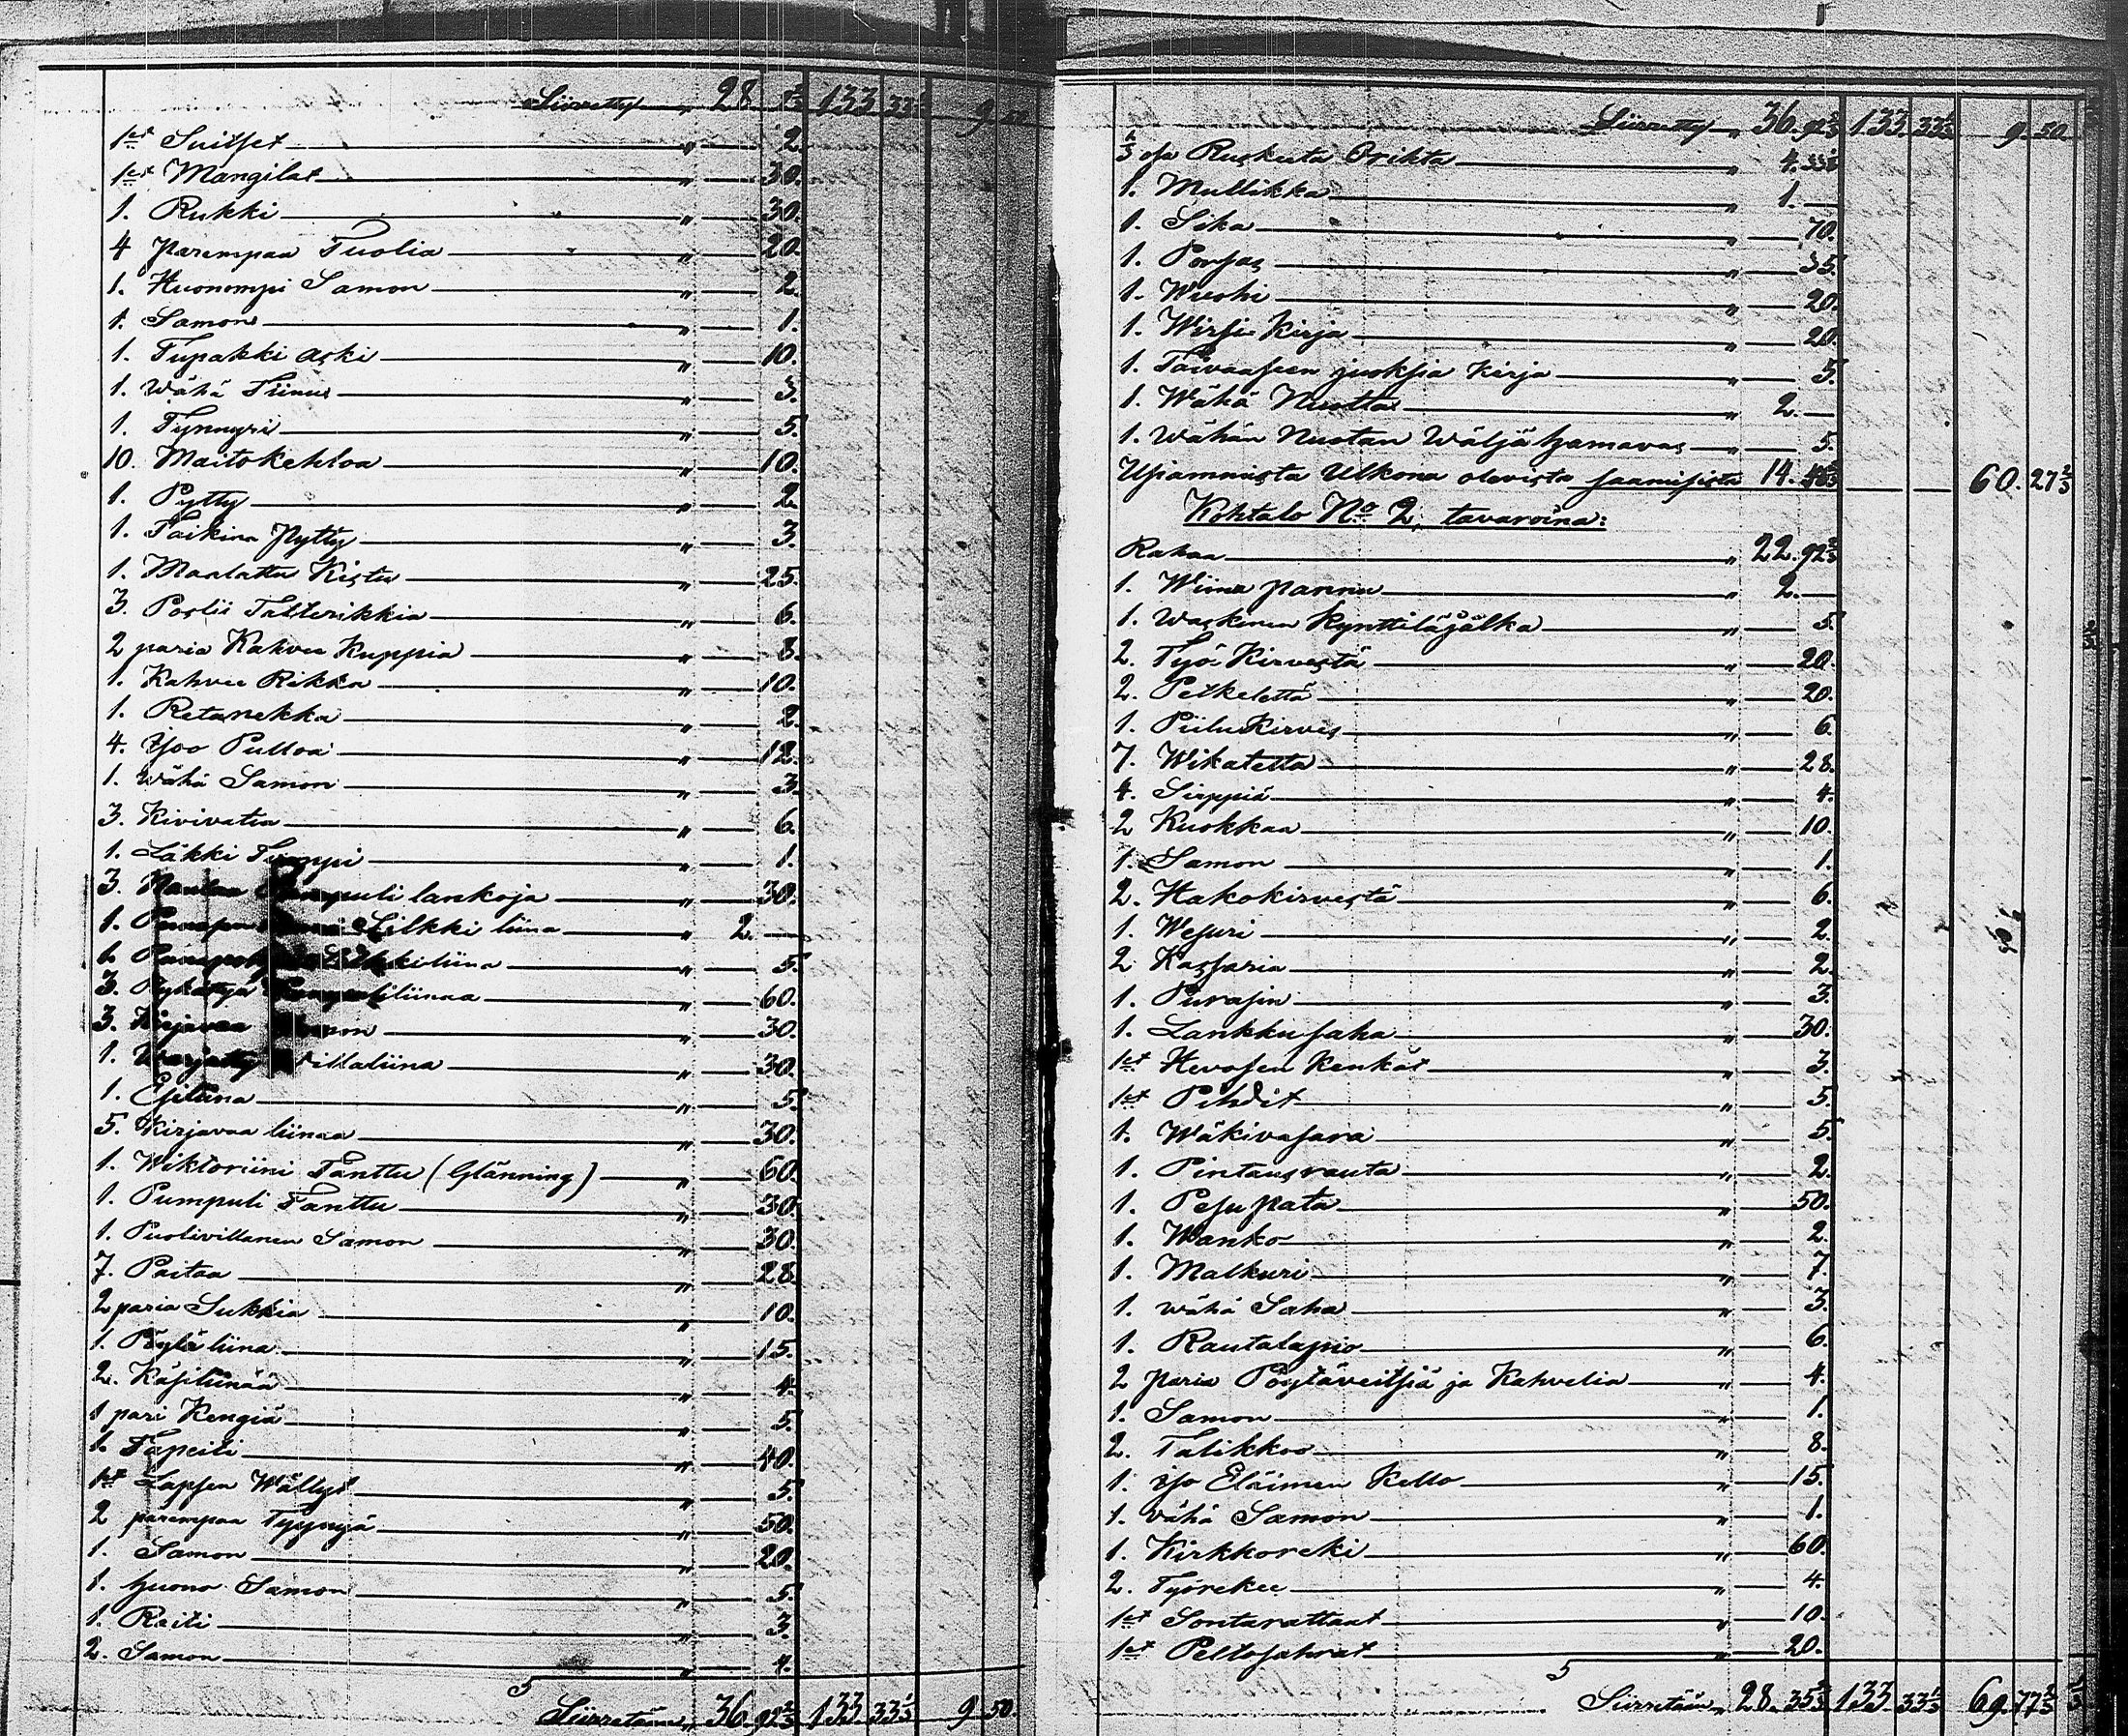 Siirretty „ 28. 133 33 9 50
1et Suitset „ 2.
1et Mangilat „ 30.
1. Rukki „ 30.
4 parempaa Tuolia „ 20.
1. Huonompi Samon „ 2.
1. Samon „ 1.
1. Tupakki aski „ 10.
1. wähä Tiinu „ 3.
1. Tynnyri „ 5.
10. Maitokehloa „ 10.
1. Pytty „ 2.
1. Taikina Pytty „ 3.
1. Maalattu Kistu „ 25.
3. Postii Talterikkia „ 6.
2 paria Kahvee Kuppia „ 8.
1. Kahvee Rikka „ 10.
1. Retanekka „ 2.
4. Isoo Pulloa „ 12.
1. wähä Samon „ 3.
3. Kivivatia „ 6.
1. Läkki Tuoppi „ 1.
3. lankoja „ 30.
1. Silkki liina „ 2.
1. „ 5.
3. „ 60.
3. Kirjavaa „ 30.
1. Villaliina „ 30.
1. Esiliina „ 5.
5. Kirjavaa liinaa „ 30.
1. Wiktoriini Tanttu (Glänning) „ 60.
1. Pumpuli Tanttu „ 30.
1. Puolivillanen Samon „ 30.
7. Paitaa „ 28.
2 paria Sukkia „ 10.
1. Pöytäliina „ 15.
2. Käsiliinää „ 4.
1 pari Kengiä „ 5.
1. Tapeiti „ 40.
1et Lapsen Wällyt „ 5.
2 parempaa Tyynyä „ 50.
1. Samon „ 20.
1. huono Samon „ 5.
1. Raiti „ 3.
2. Samon „ 4.
Siirretään „ 36. 92 2/3 133 33 1/3 9 50
Siirretty „ 36. 92 2/3 133 33 1/3 9 50
1/3 osa Ruskiista Orihta „ 4. 33 1/3
1. Mullikka „ 1.
1. Sika „ 70.
1. Porsas „ 35.
1. Wuohi „ 20.
1. Wirsi Kirja „ 20.
1. Taivaaseen juoksia Kirja „ 5.
1. Wähä Nuotta „ 2.
1. wähän Nuotan Wäljä hamavas „ 5.
Usiammista Ulkona olevista saamisista 14. 60. 27 2/3
Kohtalo No 2, tavaroina:
Rahaa „ 22. 92 2/3
1. Wiina panna „ 2.
1. waskinen Kynttiläjalka „ 5.
2. Työ Kirvestä „ 20.
2. Petkelettä „ 20.
1. Piilu Kirves „ 6.
7. Wikatetta „ 28.
4. Sirppiä „ 4.
2 Kuokkaa „ 10.
1. Samon „ 1.
2. Hakokirvestä „ 6.
1. Wesuri „ 2.
2 Kassaria „ 2.
1. Purasin „ 3.
1. Lankkusaha „ 30.
1et Hevosen Kenkät „ 3.
1et Pihdit „ 5.
1. Wäkivasara „ 5.
1. Pintausrauta „ 2.
1. Pesu pata „ 50.
1. Wanko „ 2.
1. Malkuri „ 7.
1. wähä Saha „ 3.
1. Rautalapio „ 6.
2 paria Pöytäveitsiä ja Kahvelia „ 4.
1. Samon „ 1.
2. Talikkoo „ 8.
1. iso Eläimen Kello „ 15.
1. vähä Samon „ 1.
1. Kirkkoreki „ 60.
2. Työrekee „ 4.
1et Sontarattaat „ 10.
1et Peltosahrat „ 20.
Siirretään „ 28. 35 2/3 133 33 1/3 69. 77 2/3